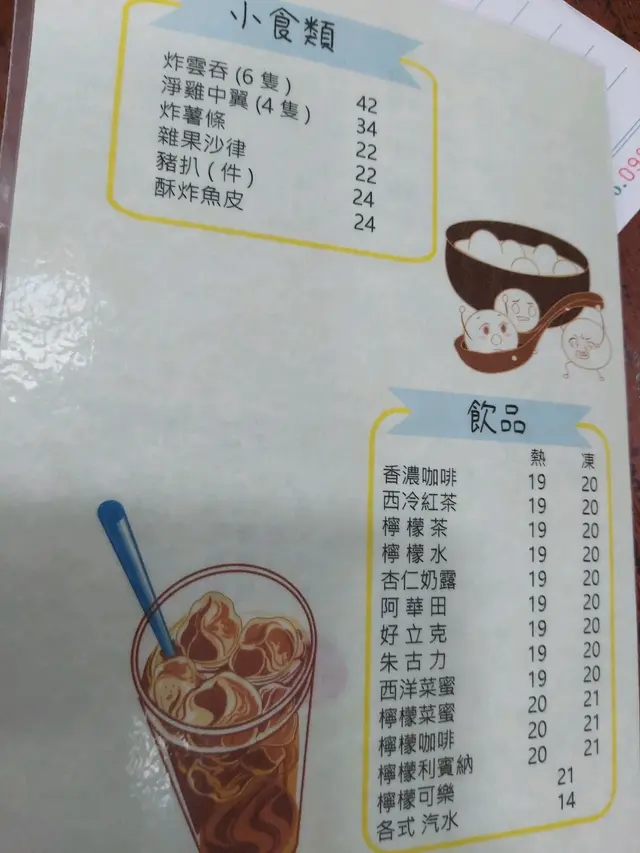 小食類
炸雲吞 (6 隻) 42
淨雞中翼 (4 隻) 34
炸薯條 22
雜果沙律 22
豬扒 ( 件 ) 24
酥炸魚皮 24
飲品
熱 凍
香濃咖啡 19 20
西冷紅茶 19 20
檸 檬 茶 19 20
檸 檬 水 19 20
杏仁奶露 19 20
阿 華 田 19 20
好 立 克 19 20
朱 古 力 19 20
西洋菜蜜 19 20
檸檬菜蜜 20 21
檸檬咖啡 20 21
檸檬利賓納 20 21
檸檬可樂 21
各式 汽水 14